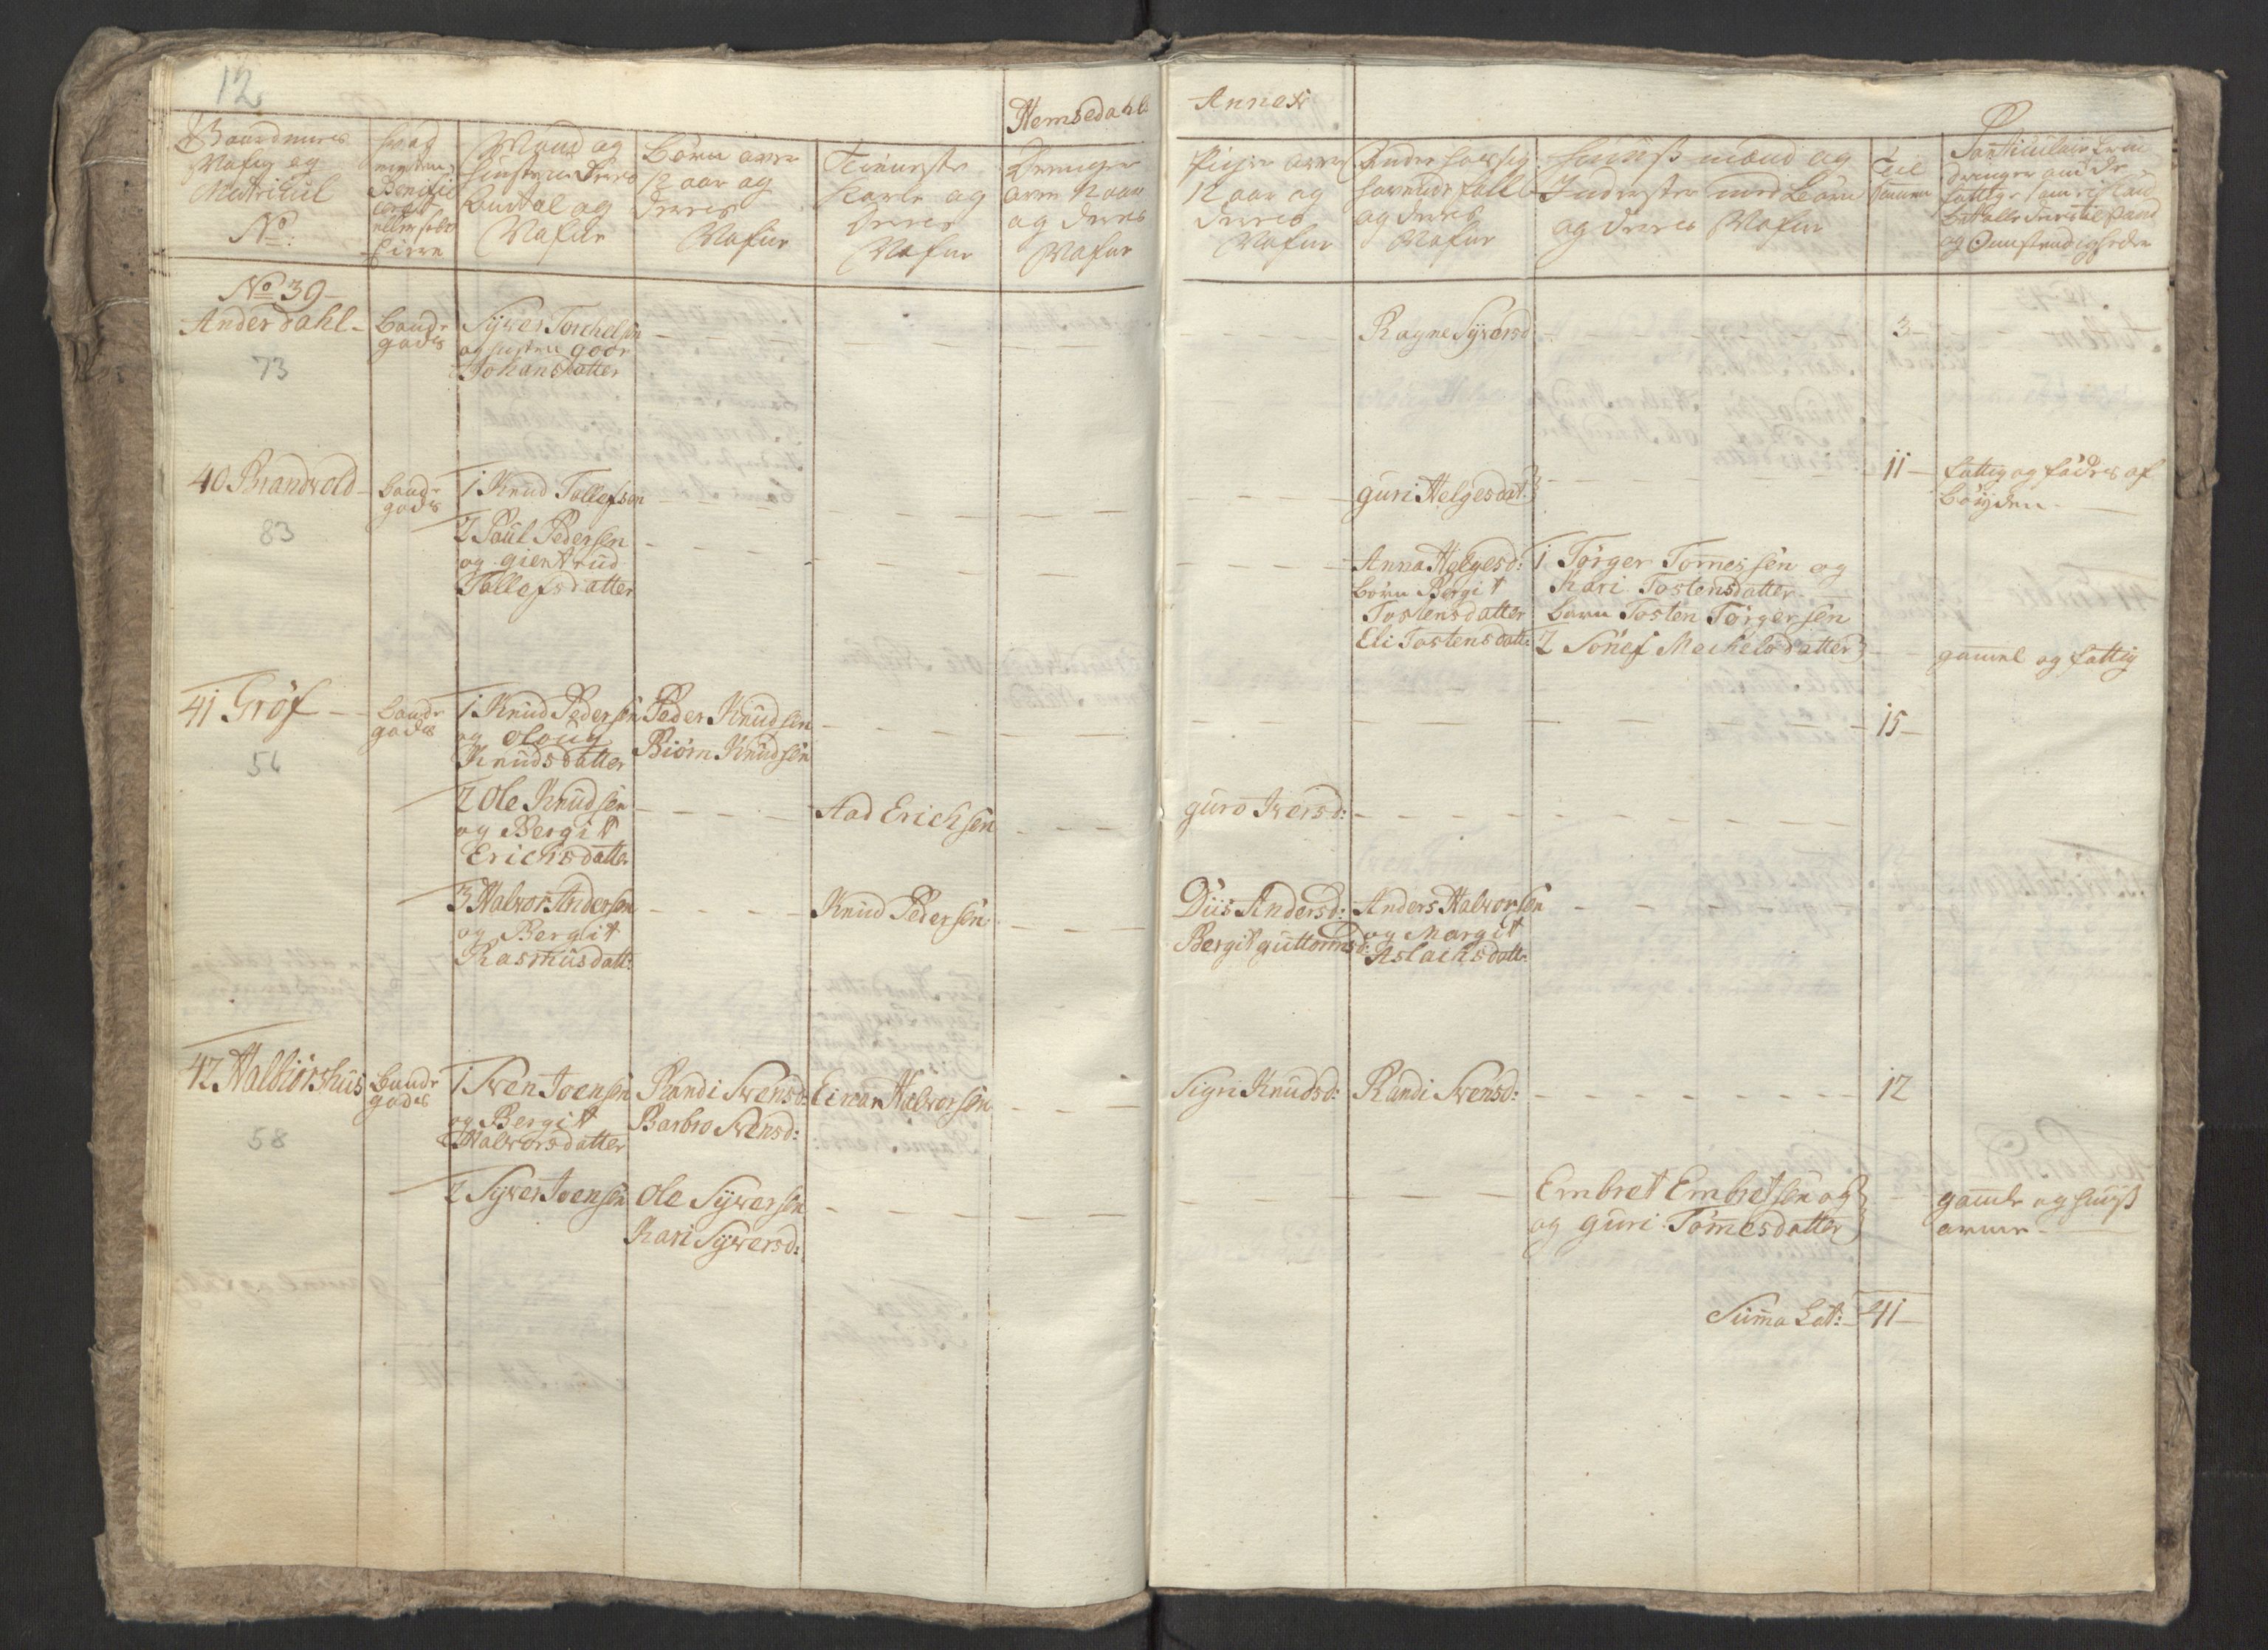 12
Hemsedahls
Annex
Gaardenes
Nafn og
Matricul
No:
Mand og
Hustru Deres
Antal og
Nafne
Börn over
12 aar og
deres
Nafne
Tieneste
Karle og
deres
Nafne
Drenge
over 12 aar
og deres
Nafne
Piger over
12 aar og
deres
Nafne
og deres
Nafne
Huuss mænd og
Inderster med Börn
og deres Nafne
Til
sammen
No 39
Anderdahl
73
Bonde
gods
Syver Torchelsön
og hustru goör
Johansdatter
Ragne Syversd
3
40 Brandvold
83
Bonde
gods
1 Knud Tollefsen
guri Helgesdat:
11
fattig og födes af
Böyden
2 Paul Pedersen
og giertrud
Tollefsdatter
Anna Helgesd:
börn Bergit
Tostensdatter
Eli Tostensdatt:
1 Törger Tomessen og
Kari Tostensdatter
barn Tosten Törgersen
2 Sönef Meikelsdatter
gamel og fattig
41 Gröf
56
Bonde
gods
1 Knud Pedersön
og oloug
Knudsdatter
Peder Knudsen
Biörn Knudsön
15
2 Ole Knudsön
og Bergit
Erichsdatter
Aad Erichsön
guro Iversd:
3 Halvor Andersön
og Bergit
Rasmusdatt:
Knud Pedersön
Diis Andersd:
Bergit guttormsd:
Anders Halvorsön
og Margit
Aslachsdatt:
42 Halbiörshus
58
Bonde
gods
1 Sven Joensön
og Bergit
Halvorsdatter
Randi Svensd:
Barbro Svensd:
Einar Halvorsön
Sigri Knudsd:
Randi Svensd:
12
2 Syver Joensön
Ole Syversön
Kari Syversd:
Embret Embretsön og
og guri Tomesdatter
gamle og huuss
arme
Summa Lat:
41